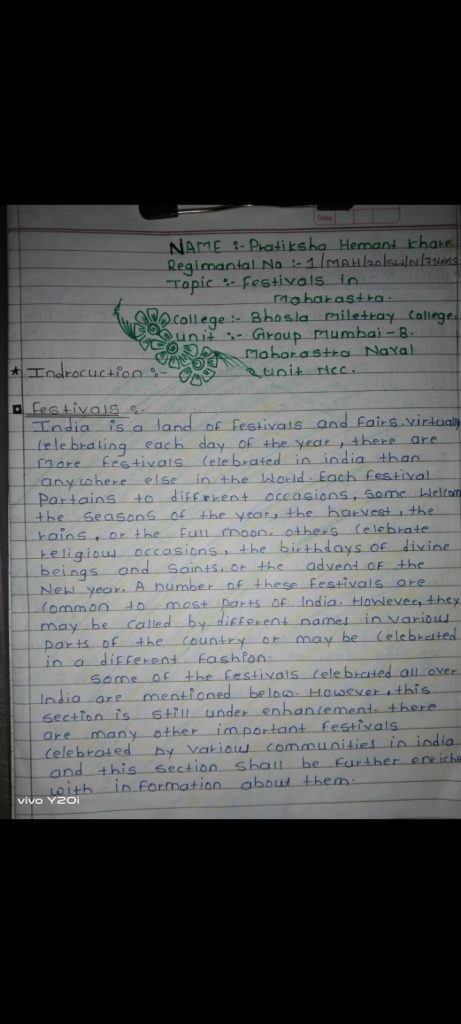 Date
NAME :- Pratiksha Hemant Khare
Regimantal No :- 1/MAH/20/SW/N/
Topic :- Festivals in
Maharastra.
College :- Bhosla Miletray College.
unit :- Group Mumbai-B.
Maharastra Naval
unit NCC.
★ Indrocuction :-
Festivals :-
India is a land of festivals and fairs. virtually
Celebrating each day of the year, there are
more festivals Celebrated in india than
anywhere else in the World. Each festival
Partains to different occasions, some Welcom
the seasons of the year, the harvest, the
rains, or the full moon. others Celebrate
religious occasions, the birthdays of divine
beings and saints, or the advent of the
New year. A number of these festivals are
Common to most parts of India. However, they
may be called by different names in various
parts of the country or may be Celebrated
in a different fashion.
some of the festivals Celebrated all over
India are mentioned below. However, this
section is still under enhancement. there
are many other important festivals
Celebrated by various communities in india
and this section shall be further enriche
with information about them.
vivo Y20i